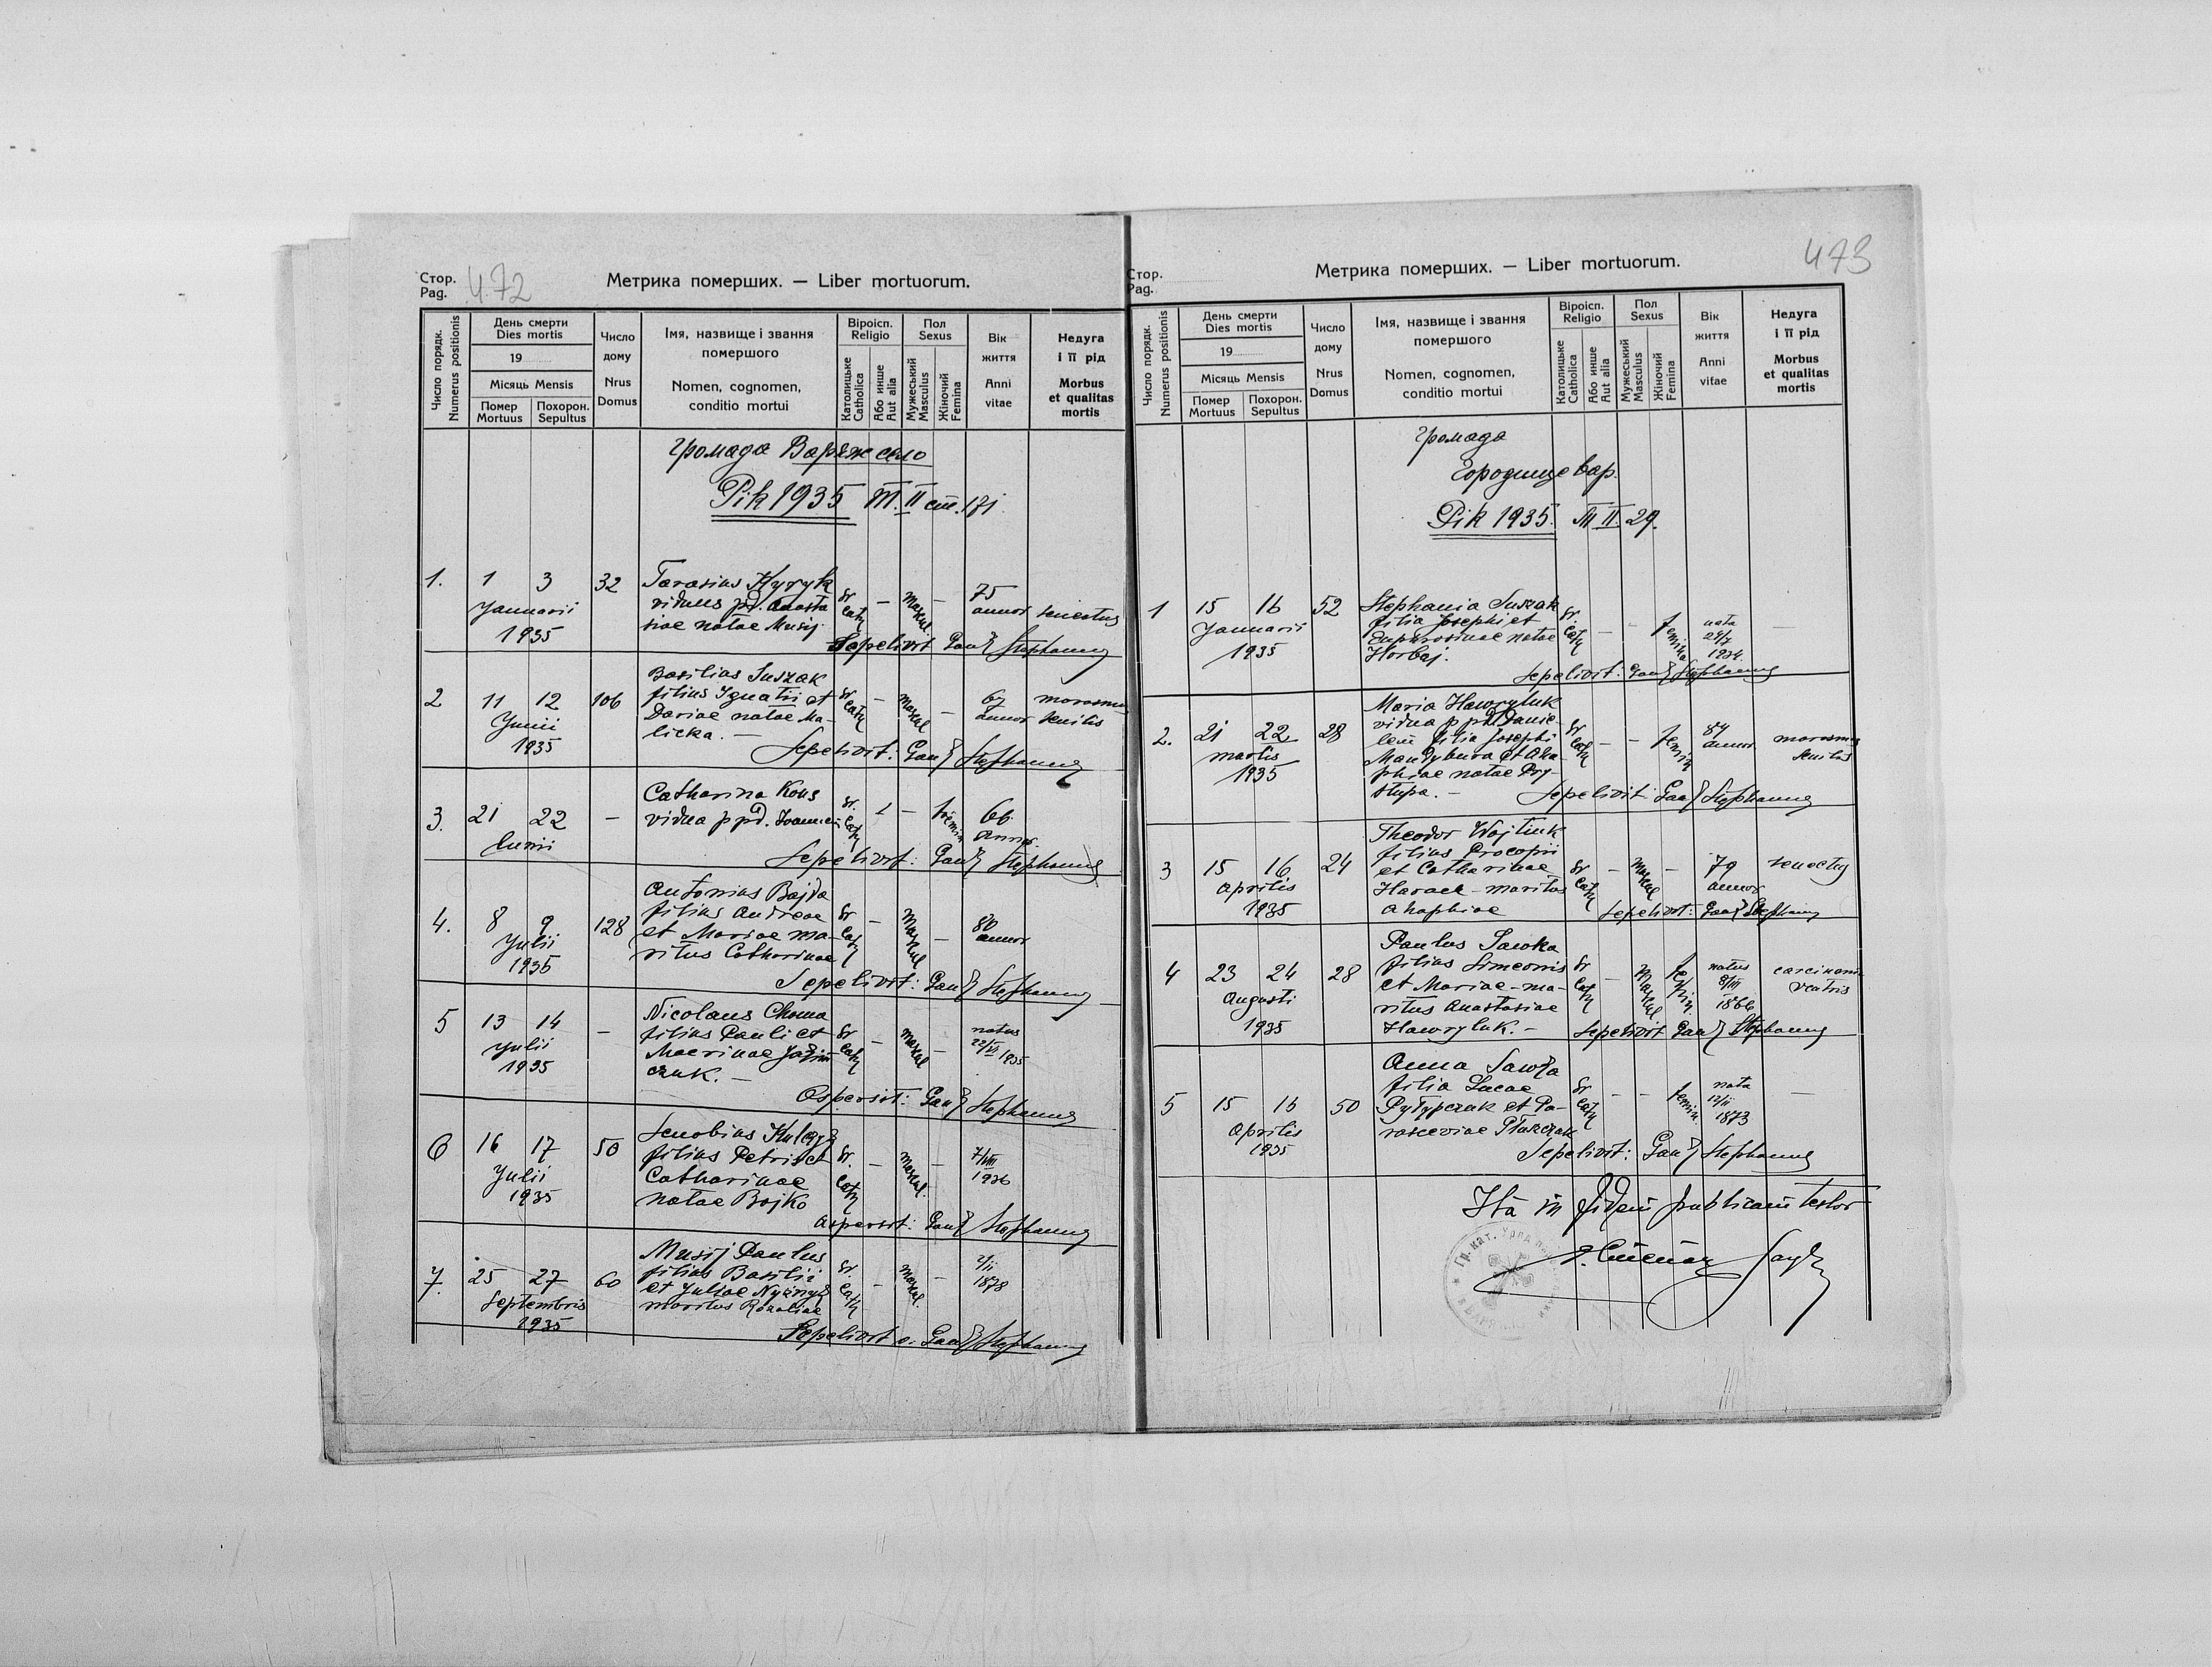 Стор.
Pag. 472
Метрика померших. — Liber mortuorum.
Число порядк.
Numerus positionis
День смерти
Dies mortis
19
Місяць Mensis
Помер
Mortuus
Похорон.
Sepultus
Число
дому
Nrus
Domus
Імя, назвище і звання
помершого
Nomen, cognomen,
conditio mortui
Віроісп.
Religio
Католицьке
Catholica
Або инше
Aut alia
Пол
Sexus
Мужеський
Masculus
Жіночий
Femina
Вік
життя
Anni
vitae
Недуга
і її рід
Morbus
et qualitas
mortis
Громада Варяж село
Рік 1935 Т. II ст. 171
1. 1 3 32
Januarii
1935
Tarasius Kyryk
viduus pd. Anasta
siae natae Musij.
Gr. Cath — mascul — 75 annor senectus
Sepelivit Stephanus
2 11 12 106
Junii
1935
Basilius Suszak
filius Ignatii et
Dariae natae Ma-
licka. —
Gr. Cath — mascul — 67 annor marasmus senilis
Sepelivit: Stephanus
3. 21 22 —
Junii
Catharina Kous
vidua p pd. Joannem
Gr. Cath — femin 66 annor
Sepelivit: Stephanus
4. 8 9 128
Julii
1935
Antonius Bajda
filius Andreae
et Mariae ma-
ritus Catharinae
Gr Cath — mascul — 80 annor
Sepelivit: Stephanus
5 13 14 —
Julii
1935
Nicolaus Choma
filius Pauli et
Macrinae
czuk. —
Gr Cath — mascul — natus 22/VI 1935
Aspersit: Stephanus
6 16 17 50
Julii
1935
filius Petri et
Catharinae
natae Bojko
Gr. Cath — mascul. —
Aspersit: Stephanus
7. 25 27 60
Septembris
1935
Musij Paulus
filius Basilii
et Juliae
maritus Rozaliae
Gr. Cath — mascul. — 2/II 1878
Sepelivit o. Stephanus
Стор.
Pag.
473
Метрика померших. — Liber mortuorum.
Число порядк.
Numerus positionis
День смерти
Dies mortis
19
Місяць Mensis
Помер
Mortuus
Похорон.
Sepultus
Число
дому
Nrus
Domus
Імя, назвище і звання
помершого
Nomen, cognomen,
conditio mortui
Віроісп.
Religio
Католицьке
Catholica
Або инше
Aut alia
Пол
Sexus
Мужеський
Masculus
Жіночий
Femina
Вік
життя
Anni
vitae
Недуга
і її рід
Morbus
et qualitas
mortis
Громада
Городище вар.
Рік 1935. Т II. 29.
1 15 16 52
Januarii
1935
Stephania Suszak
filia Josephi et
Euphrosinae natae
Horbaj.
Gr. Cath — — femina nata 24/7 1934. —
Sepelivit: Stephanus
2. 21 22 28
martis
1935
Maria Hawryluk
vidua p pd. Danie-
lem filia Josephi
Mandybura et Aha-
phiae natae Pry-
stupa. —
Gr Cath — — femin 84 annor. marasmus senilis
Sepelivit Stephanus
3 15 16 24
Aprilis
1935
Theodor Wojtiuk
filius Procopii
et Catharinae
Harack - maritus
Ahaphiae
Gr Cath — mascul — 79 annor senectus
Sepelivit: Stephanus
4 23 24 28
Augusti
1935
Paulus Sawka
filius Simeonis
et Mariae - ma-
ritus Anastasiae
Hawryluk. —
Gr Cath — mascul femin. natus 8/III 1866 carcinoma ventris
Sepelivit Stephanus
5 15 16 50
Aprilis
1935
Anna Sawka
filia Lucae
et Pa-
rasceviae
Gr Cath — — femin. nata 12/II 1873 —
Sepelivit: Stephanus
Ita in fidem publicam testor
о. Стефан
Гр. кат. Уряд